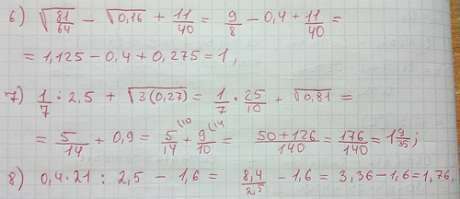 6) √(81/64) − √0,16 + 11/40 = 9/8 − 0,4 + 11/40 =
= 1,125 − 0,4 + 0,275 = 1,
7) 1/7 : 2,5 + √3(0,27) = 1/7 · 25/10 + √0,81 =
= 5/14 + 0,9 = 5/14 (10 + 9/10 (14 = (50 + 126)/140 = 176/140 = 1 9/35;
8) 0,4 · 21 : 2,5 − 1,6 = 8,4/2,5 − 1,6 = 3,36 − 1,6 = 1,76.